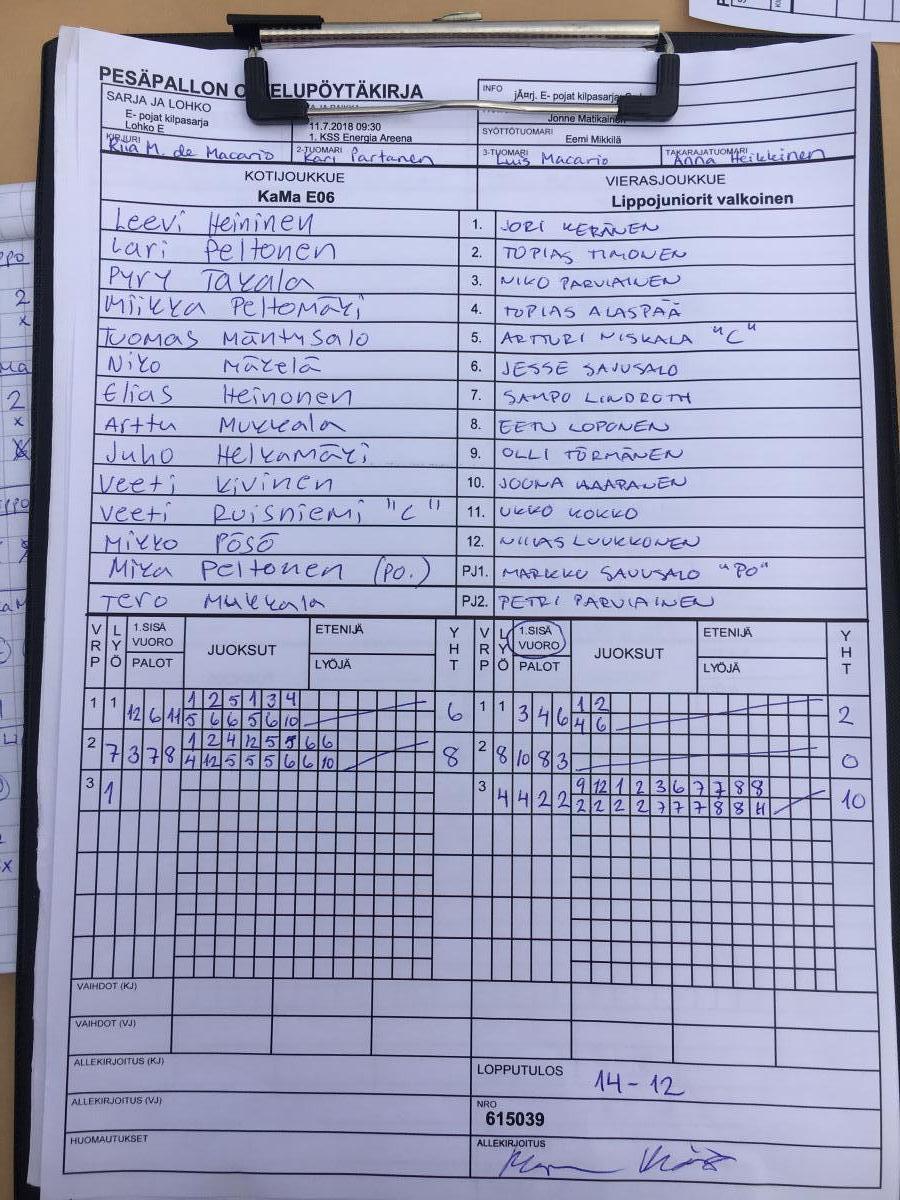 PESÄPALLON O ELUPÖYTÄKIRJA
SARJA JA LOHKO
E- pojat kilpasarja
Lohko E
11.7.2018 09:30
1. KSS Energia Areena
INFO
jÃ¤rj. E- pojat kilpasarja
Jonne Matikainen
SYÖTTÖTUOMARI
Eemi Mikkilä
KIRJURI
Riia M. de Macario
2-TUOMARI
Kari Partanen
3-TUOMARI
Luis Macario
TAKARAJATUOMARI
Anna Heikkinen
KOTIJOUKKUE
KaMa E06
VIERASJOUKKUE
Lippojuniorit valkoinen
Leevi Heininen 1. JORI KERÄNEN
Lari Peltonen 2. TOPIAS TIMONEN
Pyry Takala 3. NIKO PARVIAINEN
Miikka Peltomäki 4. TOPIAS ALASPÄÄ
Tuomas Mäntysalo 5. ARTTURI NISKALA "C"
Niko Mäkelä 6. JESSE SAVUSALO
Elias Heinonen 7. SAMPO LINDROTH
Arttu Mukkala 8. EETU LOPONEN
Juho Helkamäki 9. OLLI TÖRMÄNEN
Veeti Kivinen 10. JOONA HAAPANEN
Veeti Ruisniemi "C" 11. UKKO KOKKO
Mikko Pösö 12. NIILAS LUUKKONEN
Mika Peltonen (PO.) PJ1. MARKKU SAVUSALO "PO"
Tero Mukkala PJ2. PETRI PARVIAINEN
VRP LYÖ 1.SISÄ VUORO PALOT JUOKSUT ETENIJÄ LYÖJÄ YHT VRP LYÖ 1.SISÄ VUORO PALOT JUOKSUT ETENIJÄ LYÖJÄ YHT
1 1 12 6 11 1 2 5 1 3 4 6 1 1 3 4 6 1 2 2
5 6 6 5 6 10 4 6
2 7 3 7 8 1 2 4 12 5 5 6 6 8 2 8 10 8 3 0
4 12 5 5 5 6 6 10
3 1 3 4 4 2 2 9 12 1 2 3 6 7 7 8 8 10
2 2 2 2 7 7 7 8 8 11
VAIHDOT (KJ)
VAIHDOT (VJ)
ALLEKIRJOITUS (KJ)
LOPPUTULOS 14-12
ALLEKIRJOITUS (VJ)
NRO
615039
HUOMAUTUKSET
ALLEKIRJOITUS